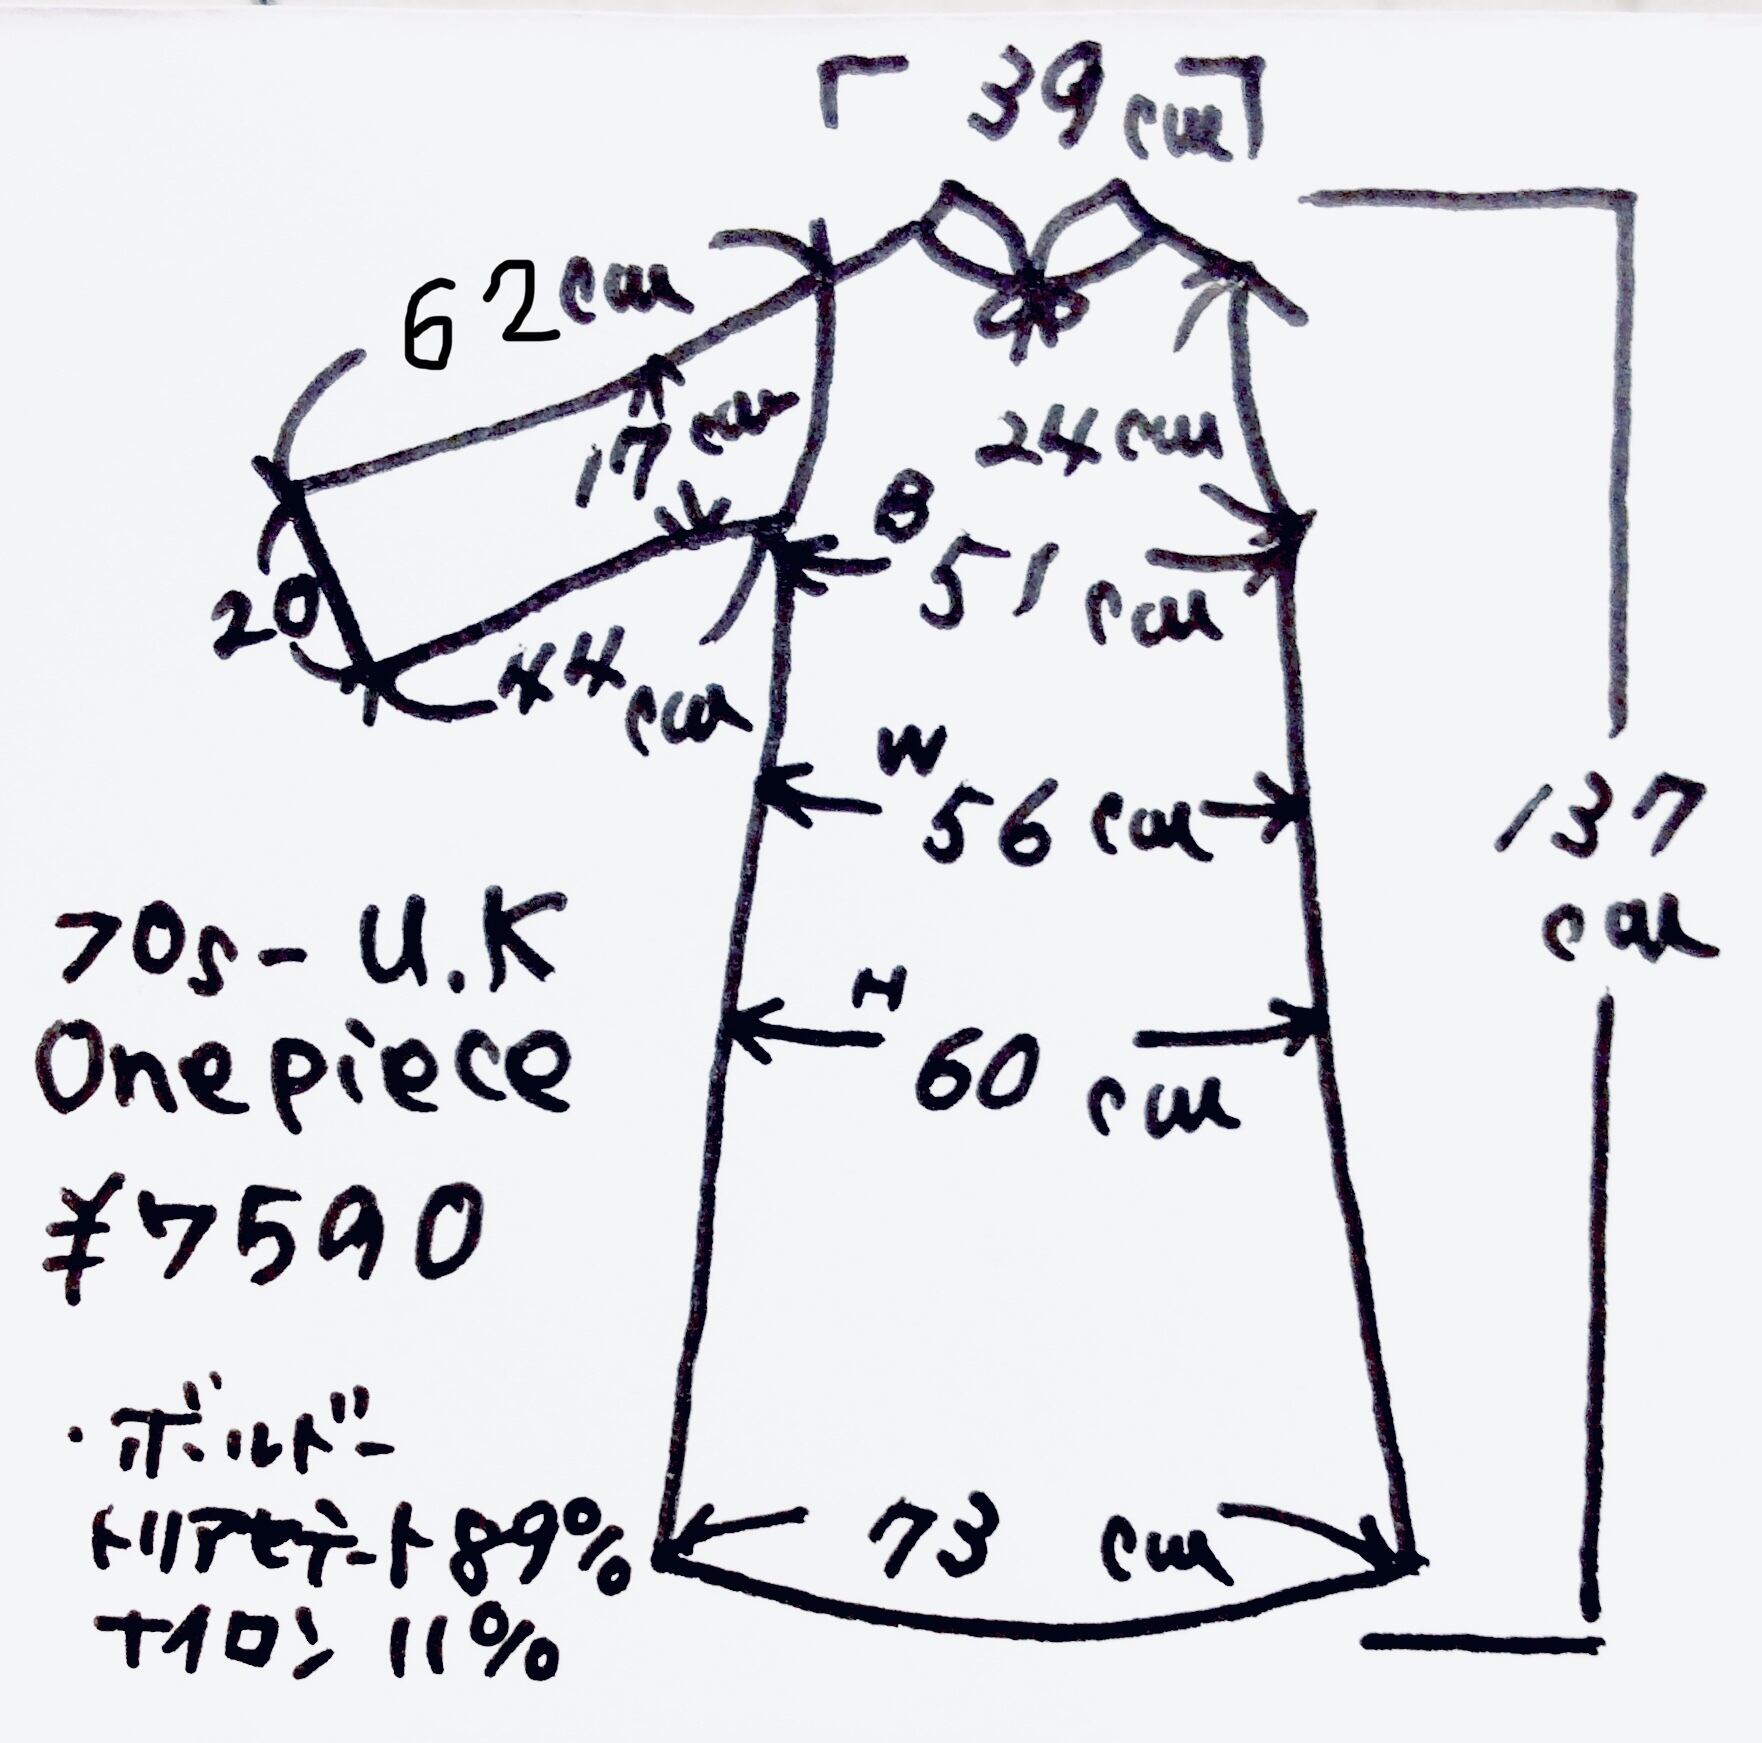 39cm
62cm
17cm
24cm
B
51cm
20
44cm
W
56cm
137
cm
70s- U.K
H
60cm
One piece
¥7590
・ボルドー
トリアセテート89%
73cm
ナイロン 11%